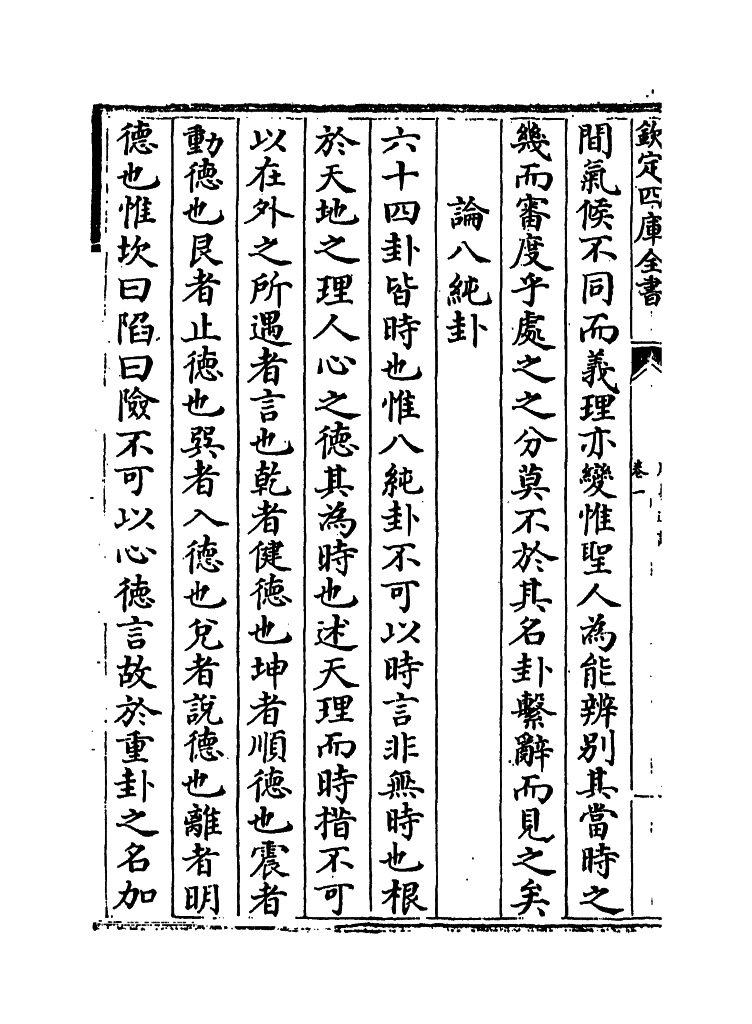 欽定四庫全書
卷一
間氣候不同而義理亦變惟聖人為能辨別其當時之
幾而審度乎處之之分莫不於其名卦繫辭而見之矣
論八純卦
六十四卦皆時也惟八純卦不可以時言非無時也根
於天地之理人心之德其為時也述天理而時措不可
以在外之所遇者言也乾者健德也坤者順德也震者
動德也艮者止德也巽者入德也兌者說德也離者明
德也惟坎曰陷曰險不可以心德言故於重卦之名加